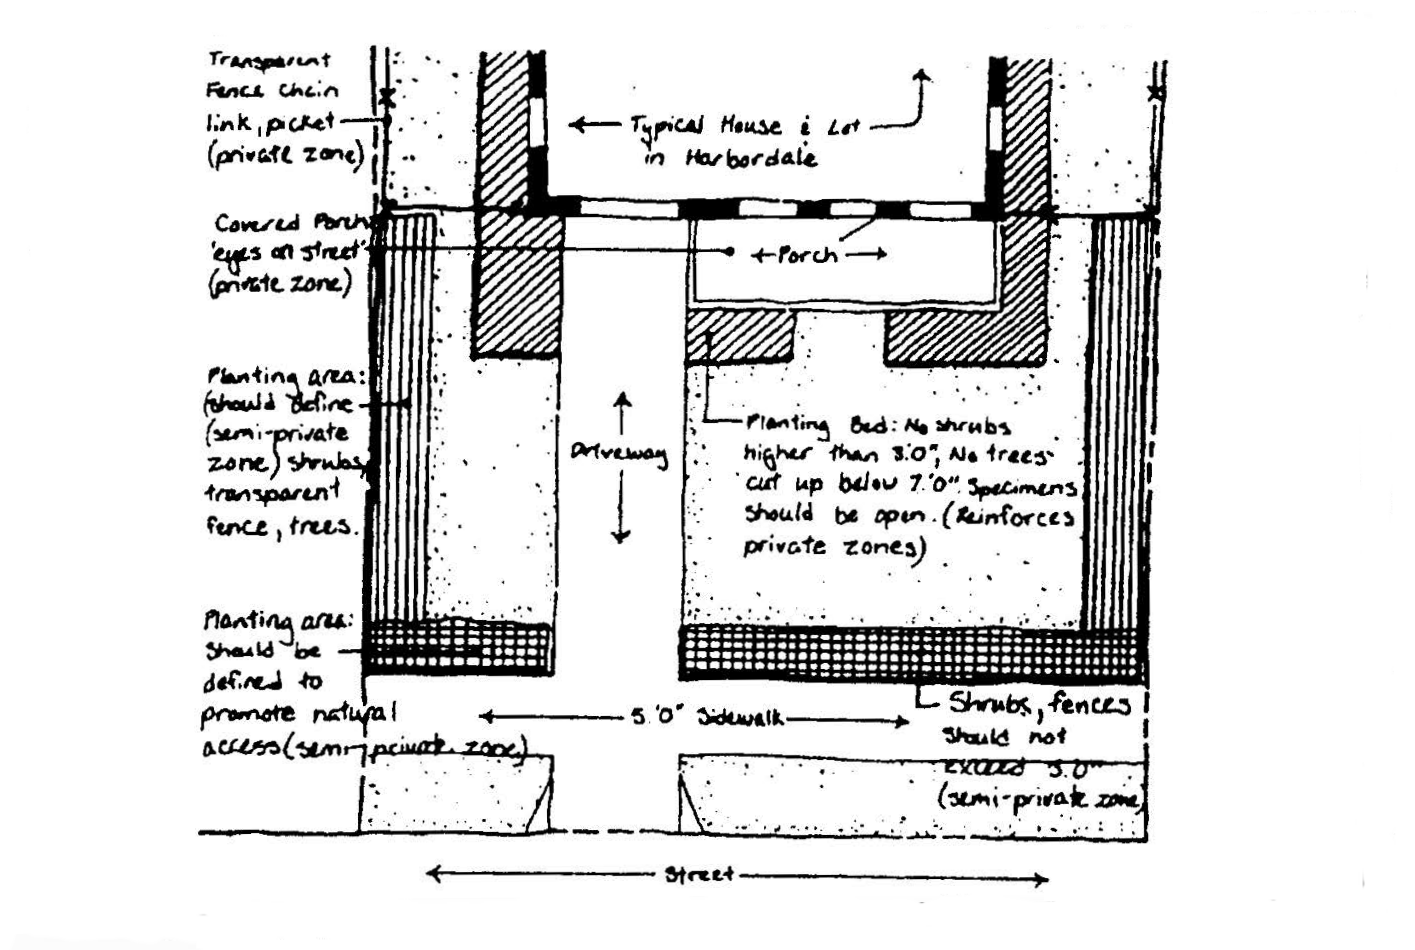 Transparent
Fence Chain
link, picket
(private zone)
Typical House & Lot
in Harbordale
Covered Porch
'eyes on street'
(private zone)
Porch
Planting area:
(should define
(semi-private
zone) shrubs,
transparent
fence, trees.
Driveway
Planting Bed: No shrubs
higher than 3'.0", No trees
cut up below 7'.0". Specimens
should be open. (Reinforces
private zones)
Planting area:
should be
defined to
promote natural
access (semi-private zone)
5'.0" Sidewalk
Shrubs, fences
should not
exceed 3'.0"
(semi-private zone)
Street